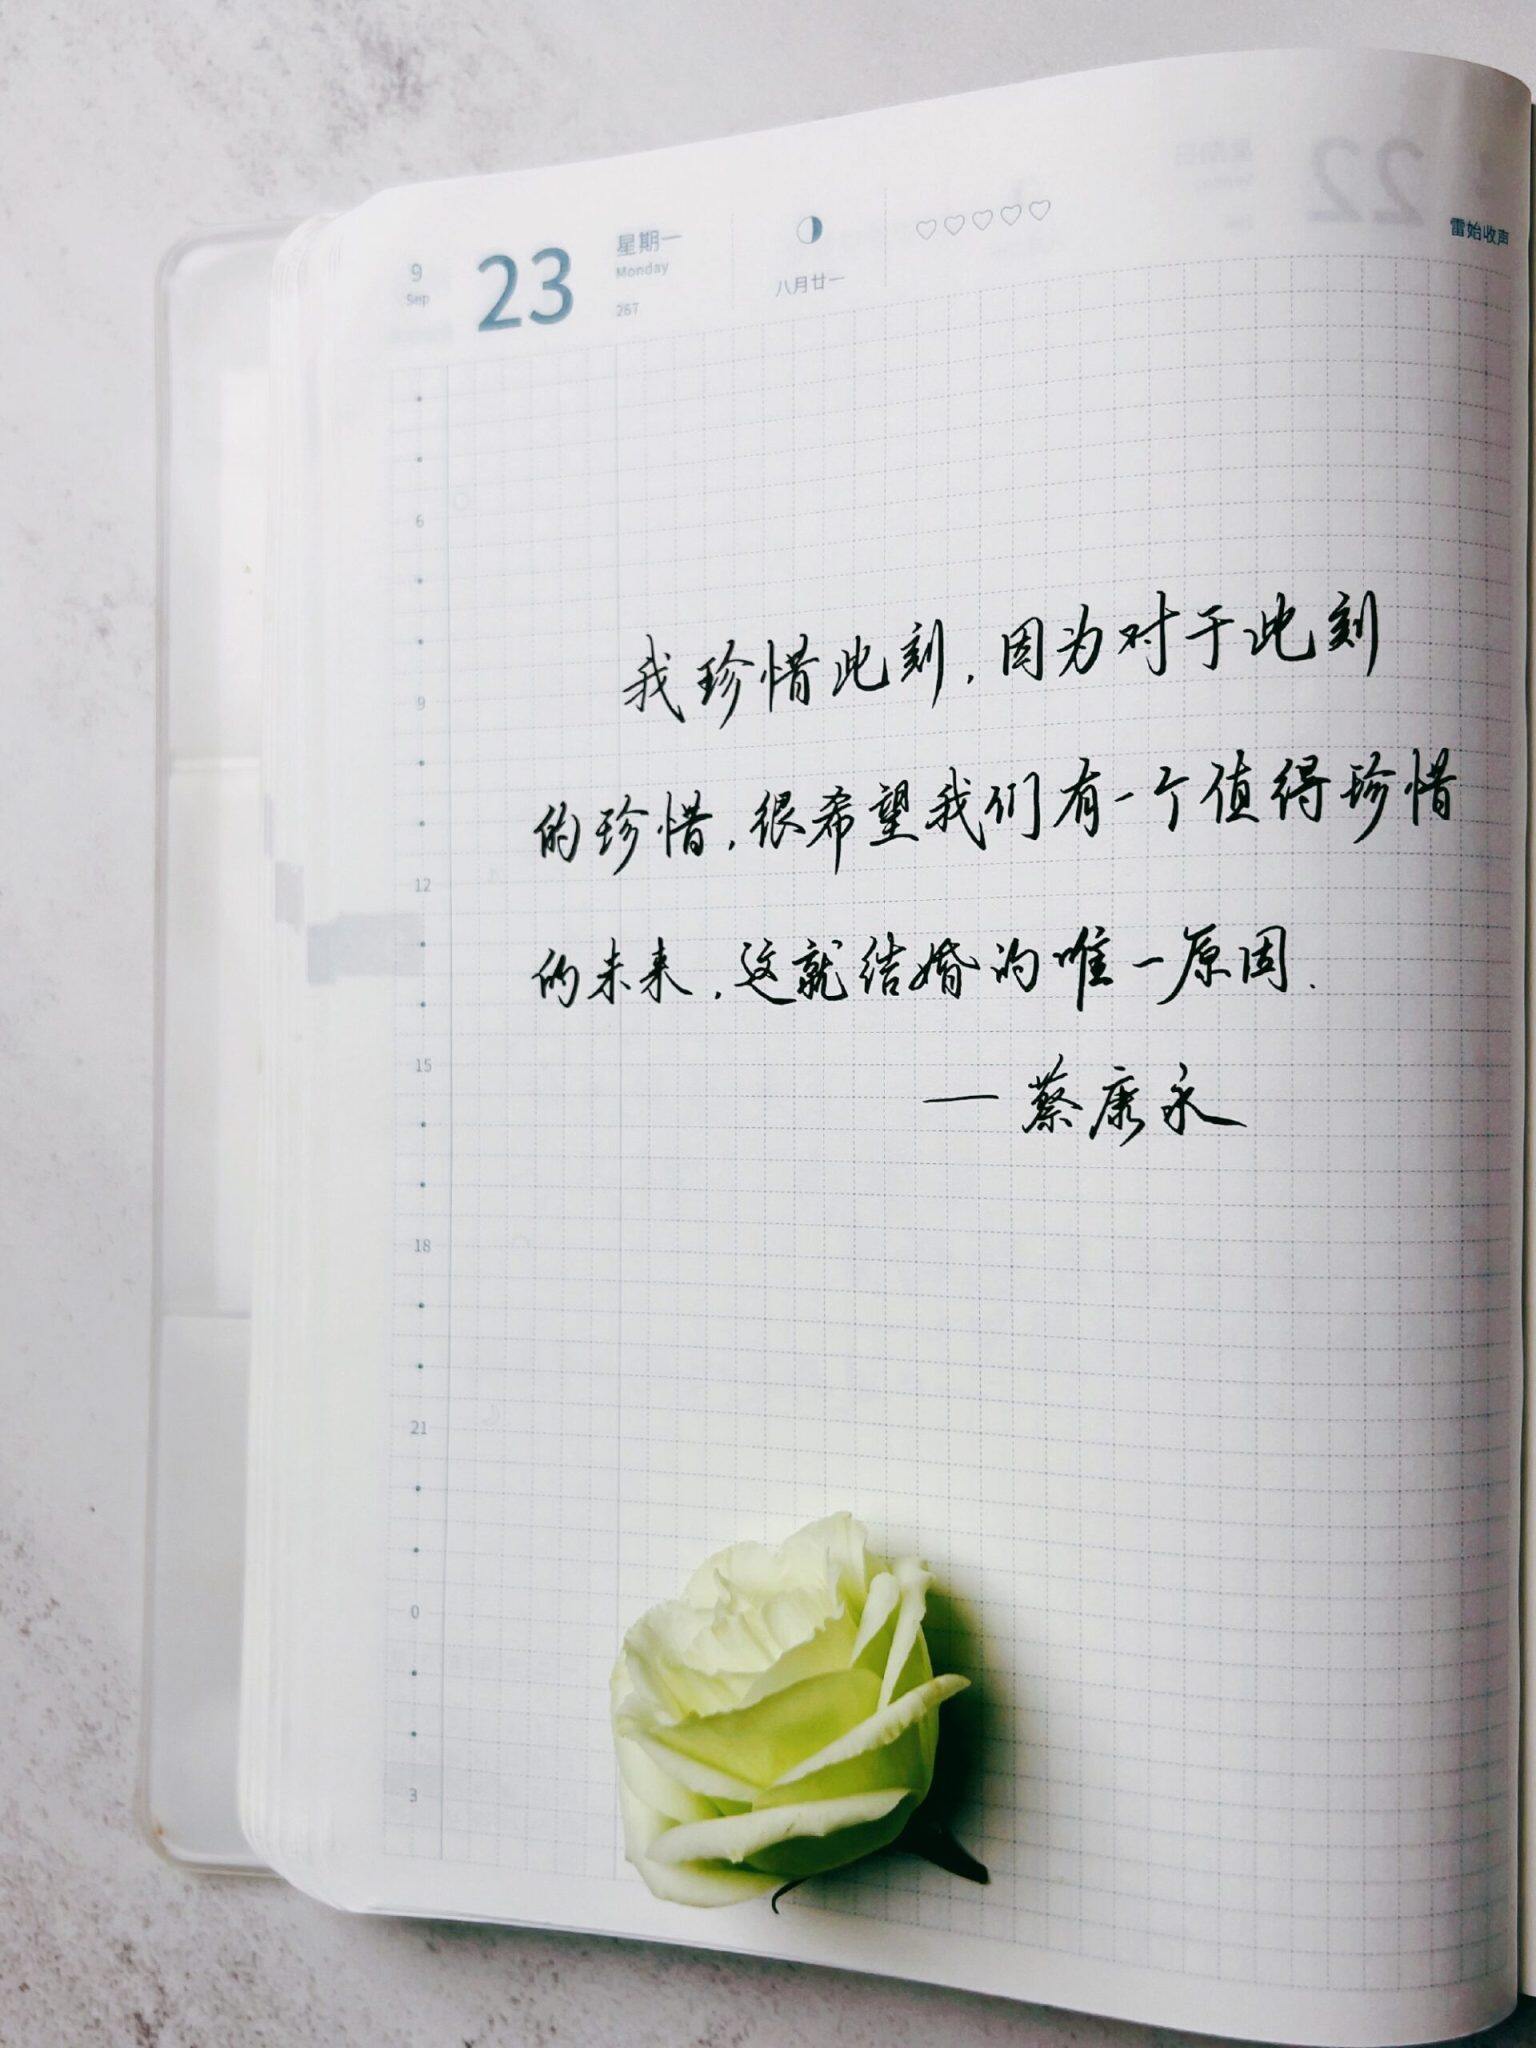 9
Sep
23
星期一
Monday
267
八月廿一
22
雷始收声
6
9
12
15
18
21
0
3
我珍惜此刻,因为对于此刻
的珍惜,很希望我们有一个值得珍惜
的未来,这就结婚的唯一原因.
—蔡康永